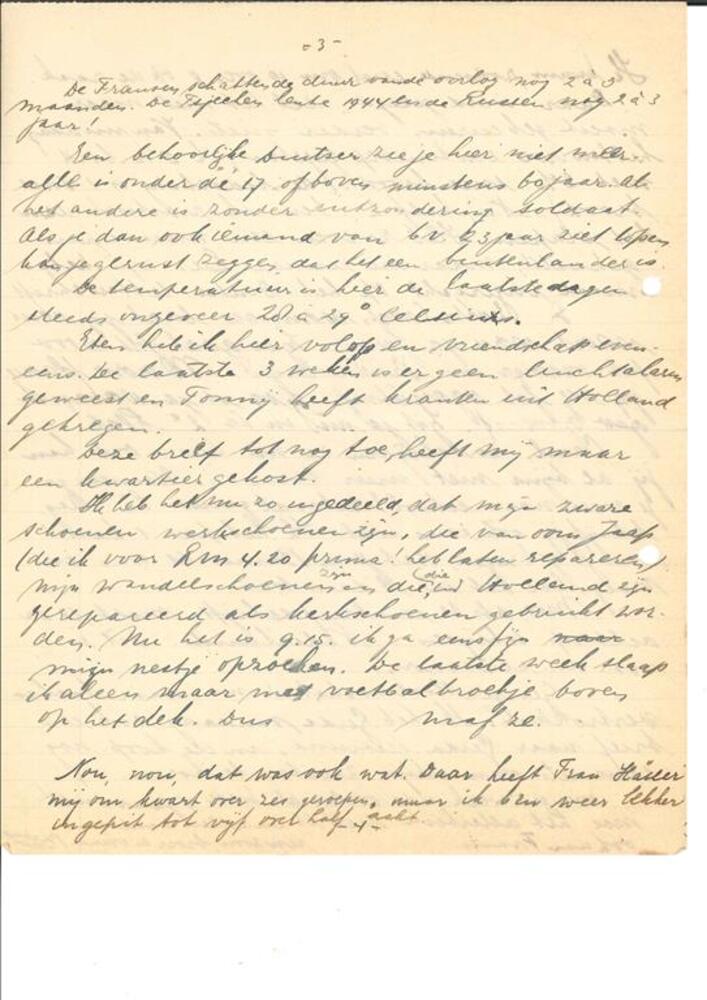 - 3 -
De Franschen schatten de duur van de oorlog nog 2 a 3
maanden. De Tsjechen lente 1944 en de Russen nog 2 à 3
jaar!
Een behoorlijke Duitser zie je hier niet meer.
alles is onder de 17 of boven minstens 60 jaar. al
het andere is zonder uitzondering soldaat.
Als je dan ook iemand van b.v. 23 jaar ziet lopen
kan je gerust zeggen dat het een buitenlander is.
De temperatuur is hier de laatste dagen
steeds ongeveer 28 a 29° Celsius.
Eten heb ik hier volop en vriendschap even-
eens. De laatste 3 weken is er geen luchtalarm
geweest en Tonnij heeft kranten uit Holland
gekregen.
Deze brief tot nog toe, heeft mij maar
een kwartier gekost.
Ik heb het nu zo ingedeeld, dat mijn zware
schoenen werkschoenen zijn, die van oom Jaap
(die ik voor Rm 4.20 prima! heb laten repareren)
mijn wandelschoenen zijn en die, die in Holland zijn
gerepareerd als kerkschoenen gebruikt wor-
den. Nu het is 9.15. ik ga eens fijn naar
mijn nestje opzoeken. De laatste week slaap
ik alleen maar met voetbalbroekje boven
op het dek. Dus maf ze.
Nou, nou, dat was ook wat. Daar heeft Frau
mij om kwart over zes geroepen, maar ik ben weer lekker
ingepit tot vijf over half acht.
- 4 -